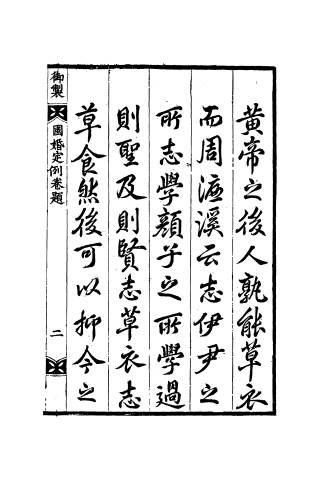 黃帝之後人孰能草衣
而周濂溪云志伊尹之
所志學顏子之所學過
則聖及則賢志草衣志
草食然後可以抑今之
御製
國婚定例卷題
二